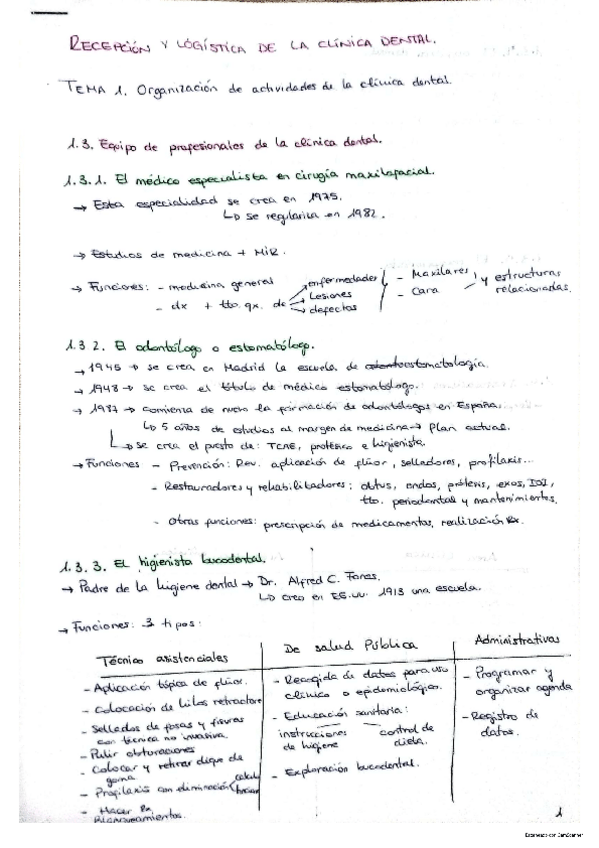 RECEPCIÓN Y LOGÍSTICA DE LA CLÍNICA DENTAL.
TEMA 1. Organización de actividades de la clínica dental.
1.3. Equipo de profesionales de la clínica dental.
1.3.1. El médico especialista en cirugía maxilofacial.
→ Esta especialidad se crea en 1975.
↳ se regulariza en 1982.
→ Estudios de medicina + MIR.
→ Funciones: - medicina general
- dx + tto. qx. de → enfermedades - Maxilares y estructuras
→ Lesiones - Cara relacionadas.
→ defectos
1.3.2. El odontólogo o estomatólogo.
→ 1945 → se crea en Madrid la escuela de estomatología.
→ 1948 → se crea el título de médico estomatólogo.
→ 1987 → Comienza de nuevo la formación de odontólogos en España.
↳ 5 años de estudios al margen de medicina → Plan actual.
↳ se crea el puesto de: TCAE, protésico e higienista.
→ Funciones - Prevención: Rev. aplicación de flúor, selladores, profilaxis...
- Restauradores y rehabilitadores: obtus, endos, prótesis, exos, IOI,
tto. periodontal y mantenimientos.
- Otras funciones: prescripción de medicamentos, realización Rx.
1.3.3. El higienista bucodental.
→ Padre de la higiene dental → Dr. Alfred C. Fones.
↳ Creo en EE.UU. 1913 una escuela.
→ Funciones: 3 tipos:
Técnico asistenciales
- Aplicación tópica de flúor.
- Colocación de hilos retractore
- Sellados de fosas y fisuras
con técnica no invasiva.
- Pulir obturaciones
- Colocar y retirar dique de
goma.
- Profilaxis con eliminación
- Hacer Rx
Blanqueamientos.
De salud Pública
- Recogida de datos para uso
clínico o epidemiológico.
- Educación sanitaria:
instrucciones control de
de higiene dieta.
- Exploración bucodental.
Administrativas
- Programar y
organizar agenda
- Registro de
datos.
1
Escaneado con CamScanner